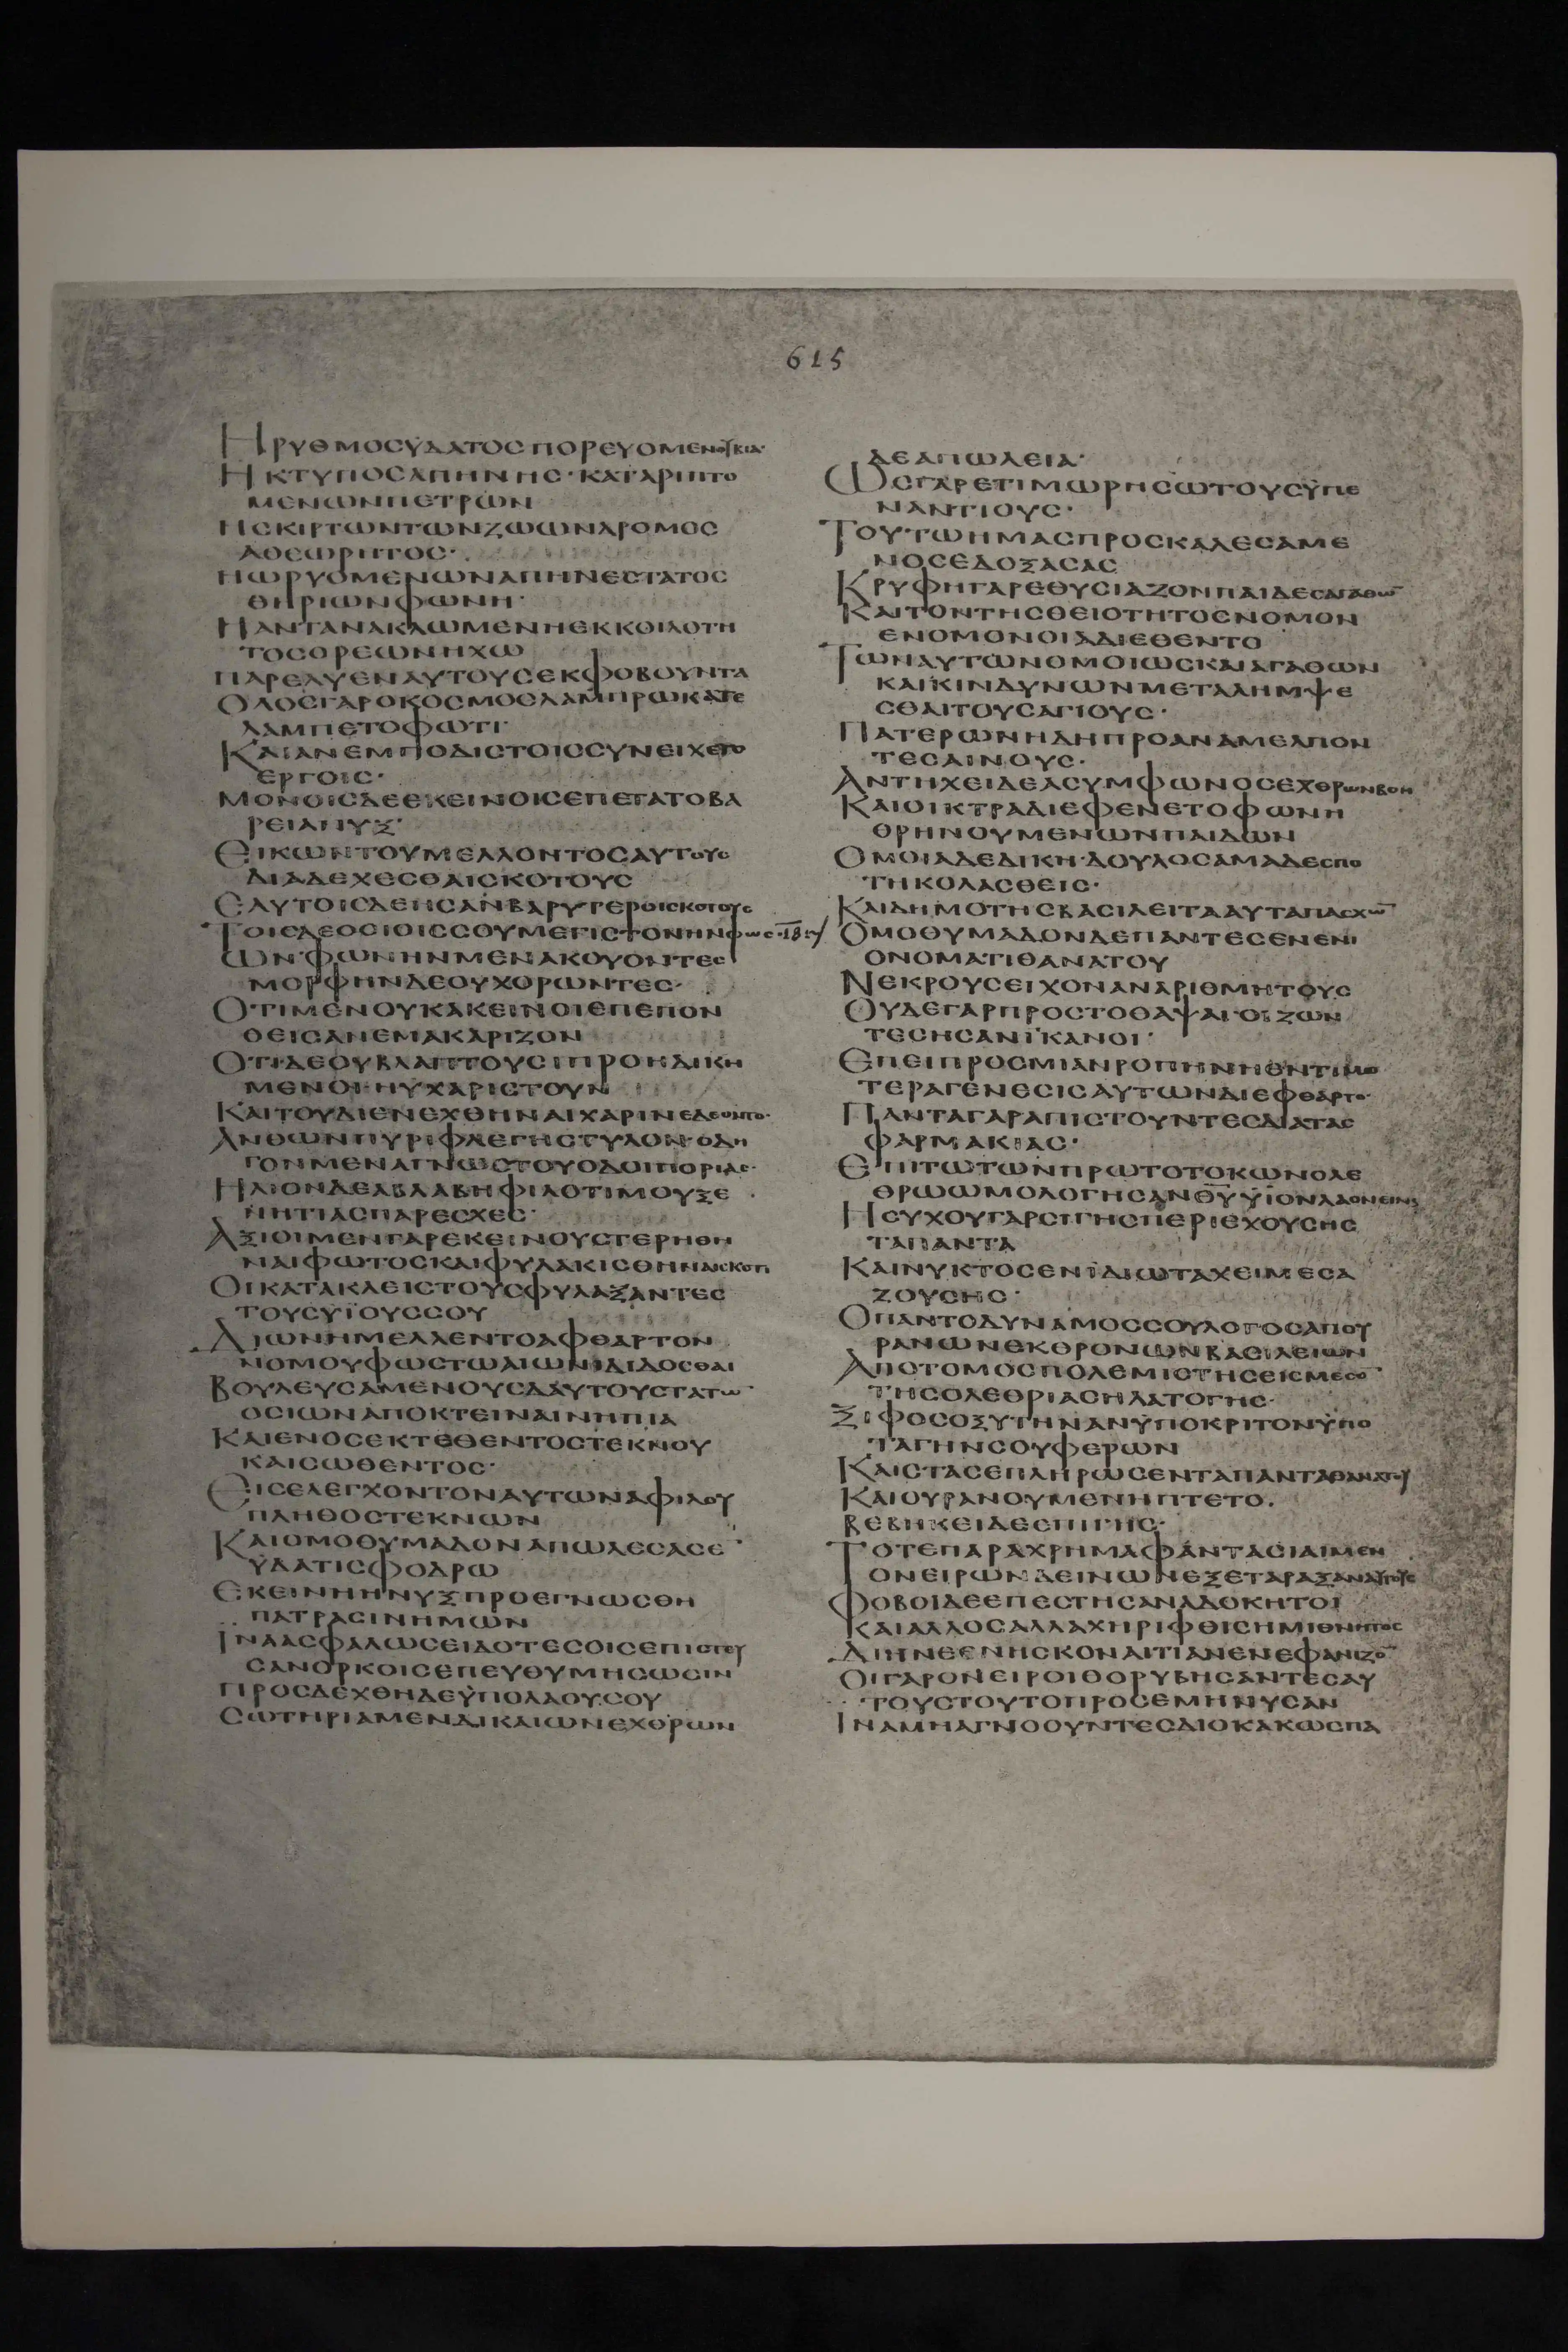 615
ΗΡΥΘΜΟΣΫΔΑΤΟΣΠΟΡΕΥΟΜΕΝΟΥΒΙΑ·
ΗΚΤΥΠΟΣΑΠΗΝΗΣ·ΚΑΤΑΡΙΠΤΟ
ΜΕΝΩΝΠΕΤΡΩΝ
ΗΣΚΙΡΤΩΝΤΩΝΖΩΩΝΔΡΟΜΟΣ
ΑΘΕΩΡΗΤΟΣ·
ΗΩΡΥΟΜΕΝΩΝΑΠΗΝΕΣΤΑΤΟΣ
ΘΗΡΙΩΝΦΩΝΗ·
ΗΑΝΤΑΝΑΚΛΩΜΕΝΗΕΚΚΟΙΛΟΤΗ
ΤΟΣΟΡΕΩΝΗΧΩ
ΠΑΡΕΛΥΕΝΑΥΤΟΥΣΕΚΦΟΒΟΥΝΤΑ
ΟΛΟΣΓΑΡΟΚΟΣΜΟΣΛΑΜΠΡΩΚΑΤΕ
ΛΑΜΠΕΤΟΦΩΤΙ·
ΚΑΙΑΝΕΜΠΟΔΙΣΤΟΙΣΣΥΝΕΙΧΕΤΟ
ΕΡΓΟΙΣ·
ΜΟΝΟΙΣΔΕΕΚΕΙΝΟΙΣΕΠΕΤΑΤΟΒΑ
ΡΕΙΑΝΥΞ·
ΕΙΚΩΝΤΟΥΜΕΛΛΟΝΤΟΣΑΥΤΟΥΣ
ΔΙΑΔΕΧΕΣΘΑΙΣΚΟΤΟΥΣ
ΕΑΥΤΟΙΣΔΕΗΣΑΝΒΑΡΥΤΕΡΟΙΣΚΟΤΟΥΣ
ΤΟΙΣΔΕΟΣΙΟΙΣΣΟΥΜΕΓΙΣΤΟΝΗΝΦΩΣ·
ΩΝ·ΦΩΝΗΝΜΕΝΑΚΟΥΟΝΤΕΣ
ΜΟΡΦΗΝΔΕΟΥΧΟΡΩΝΤΕΣ·
ΟΤΙΜΕΝΟΥΚΑΚΕΙΝΟΙΕΠΕΠΟΝ
ΘΕΙΣΑΝΕΜΑΚΑΡΙΖΟΝ
ΟΤΙΔΕΟΥΒΛΑΠΤΟΥΣΙΠΡΟΗΔΙΚΗ
ΜΕΝΟΙ·ΗΥΧΑΡΙΣΤΟΥΝ
ΚΑΙΤΟΥΔΙΕΝΕΧΘΗΝΑΙΧΑΡΙΝΕΔΕΟΝΤΟ·
ΑΝΘΩΝΠΥΡΙΦΛΕΓΗΣΤΥΛΟΝ·ΟΔΗ
ΓΟΝΜΕΝΑΓΝΩΣΤΟΥΟΔΟΙΠΟΡΙΑΣ·
ΗΛΙΟΝΔΕΑΒΛΑΒΗΦΙΛΟΤΙΜΟΥΞΕ
ΝΗΤΙΑΣΠΑΡΕΣΧΕΣ·
ΑΞΙΟΙΜΕΝΓΑΡΕΚΕΙΝΟΥΣΤΕΡΗΘΗ
ΝΑΙΦΩΤΟΣΚΑΙΦΥΛΑΚΙΣΘΗΝΑΙΣΚΟΤΙ
ΟΙΚΑΤΑΚΛΕΙΣΤΟΥΣΦΥΛΑΞΑΝΤΕΣ
ΤΟΥΣΥΪΟΥΣΣΟΥ
ΔΙΩΝΗΜΕΛΛΕΝΤΟΑΦΘΑΡΤΟΝ
ΝΟΜΟΥΦΩΣΤΩΑΙΩΝΙΔΙΔΟΣΘΑΙ
ΒΟΥΛΕΥΣΑΜΕΝΟΥΣΔΑΥΤΟΥΣΤΑΤΩ
ΟΣΙΩΝΑΠΟΚΤΕΙΝΑΙΝΗΠΙΑ
ΚΑΙΕΝΟΣΕΚΤΕΘΕΝΤΟΣΤΕΚΝΟΥ
ΚΑΙΣΩΘΕΝΤΟΣ·
ΕΙΣΕΛΕΓΧΟΝΤΟΝΑΥΤΩΝΑΦΙΛΟΥ
ΠΛΗΘΟΣΤΕΚΝΩΝ
ΚΑΙΟΜΟΘΥΜΑΔΟΝΑΠΩΛΕΣΑΣΕ
ΫΔΑΤΙΣΦΟΔΡΩ
ΕΚΕΙΝΗΗΝΥΞΠΡΟΕΓΝΩΣΘΗ
ΠΑΤΡΑΣΙΝΗΜΩΝ
ΪΝΑΑΣΦΑΛΩΣΕΙΔΟΤΕΣΟΙΣΕΠΙΣΤΕΥ
ΣΑΝΟΡΚΟΙΣΕΠΕΥΘΥΜΗΣΩΣΙΝ
ΠΡΟΣΔΕΧΘΗΔΕΫΠΟΛΑΟΥΣΟΥ
ΣΩΤΗΡΙΑΜΕΝΔΙΚΑΙΩΝΕΧΘΡΩΝ
ΔΕΑΠΩΛΕΙΑ·
ΩΣΓΑΡΕΤΙΜΩΡΗΣΩΤΟΥΣΫΠΕ
ΝΑΝΤΙΟΥΣ·
ΤΟΥΤΩΗΜΑΣΠΡΟΣΚΑΛΕΣΑΜΕ
ΝΟΣΕΔΟΞΑΣΑΣ
ΚΡΥΦΗΓΑΡΕΘΥΣΙΑΖΟΝΠΑΙΔΕΣΑΓΑΘΩ
ΚΑΙΤΟΝΤΗΣΘΕΙΟΤΗΤΟΣΝΟΜΟΝ
ΕΝΟΜΟΝΟΙΑΔΙΕΘΕΝΤΟ
ΤΩΝΑΥΤΩΝΟΜΟΙΩΣΚΑΙΑΓΑΘΩΝ
ΚΑΙΚΙΝΔΥΝΩΝΜΕΤΑΛΗΜΨΕ
ΣΘΑΙΤΟΥΣΑΓΙΟΥΣ·
ΠΑΤΕΡΩΝΗΔΗΠΡΟΑΝΑΜΕΛΠΟΝ
ΤΕΣΑΙΝΟΥΣ·
ΑΝΤΗΧΕΙΔΕΑΣΥΜΦΩΝΟΣΕΧΘΡΩΝΒΟΗ
ΚΑΙΟΙΚΤΡΑΔΙΕΦΕΝΕΤΟΦΩΝΗ
ΘΡΗΝΟΥΜΕΝΩΝΠΑΙΔΩΝ
ΟΜΟΙΑΔΕΔΙΚΗ·ΔΟΥΛΟΣΑΜΑΔΕΣΠΟ
ΤΗΚΟΛΑΣΘΕΙΣ·
ΚΑΙΔΗΜΟΤΗΣΒΑΣΙΛΕΙΤΑΑΥΤΑΠΑΣΧΩ
ΟΜΟΘΥΜΑΔΟΝΔΕΠΑΝΤΕΣΕΝΕΝΙ
ΟΝΟΜΑΤΙΘΑΝΑΤΟΥ
ΝΕΚΡΟΥΣΕΙΧΟΝΑΝΑΡΙΘΜΗΤΟΥΣ
ΟΥΔΕΓΑΡΠΡΟΣΤΟΘΑΨΑΙ·ΟΙΖΩΝ
ΤΕΣΗΣΑΝΪΚΑΝΟΙ·
ΕΠΕΙΠΡΟΣΜΙΑΝΡΟΠΗΝΗΕΝΤΙΜΟ
ΤΕΡΑΓΕΝΕΣΙΣΑΥΤΩΝΔΙΕΦΘΑΡΤΟ·
ΠΑΝΤΑΓΑΡΑΠΙΣΤΟΥΝΤΕΣΔΙΑΤΑΣ
ΦΑΡΜΑΚΙΑΣ·
ΕΠΙΤΩΤΩΝΠΡΩΤΟΤΟΚΩΝΟΛΕ
ΘΡΩΩΜΟΛΟΓΗΣΑΝΘΥΫΪΟΝΛΑΟΝΕΙΝΑΙ
ΗΣΥΧΟΥΓΑΡΣΙΓΗΣΠΕΡΙΕΧΟΥΣΗΣ
ΤΑΠΑΝΤΑ
ΚΑΙΝΥΚΤΟΣΕΝΪΔΙΩΤΑΧΕΙΜΕΣΑ
ΖΟΥΣΗΣ·
ΟΠΑΝΤΟΔΥΝΑΜΟΣΣΟΥΛΟΓΟΣΑΠΟΥ
ΡΑΝΩΝΕΚΘΡΟΝΩΝΒΑΣΙΛΕΙΩΝ
ΑΠΟΤΟΜΟΣΠΟΛΕΜΙΣΤΗΣΕΙΣΜΕΣΟ
ΤΗΣΟΛΕΘΡΙΑΣΗΛΑΤΟΓΗΣ·
ΞΙΦΟΣΟΞΥΤΗΝΑΝΫΠΟΚΡΙΤΟΝΫΠΟ
ΤΑΓΗΝΣΟΥΦΕΡΩΝ
ΚΑΙΣΤΑΣΕΠΛΗΡΩΣΕΝΤΑΠΑΝΤΑΘΑΝΑΤΟΥ
ΚΑΙΟΥΡΑΝΟΥΜΕΝΗΠΤΕΤΟ.
ΒΕΒΗΚΕΙΔΕΣΠΙΓΗΣ·
ΤΟΤΕΠΑΡΑΧΡΗΜΑΦΑΝΤΑΣΙΑΙΜΕΝ
ΟΝΕΙΡΩΝΔΕΙΝΩΝΕΞΕΤΑΡΑΞΑΝΑΥΤΟΥΣ
ΦΟΒΟΙΔΕΕΠΕΣΤΗΣΑΝΑΔΟΚΗΤΟΙ
ΚΑΙΑΛΛΟΣΑΛΛΑΧΗΡΙΦΘΙΣΗΜΙΘΝΗΤΟΣ
ΔΙΗΝΕΘΝΗΣΚΟΝΑΙΤΙΑΝΕΝΕΦΑΝΙΖΟ
ΟΙΓΑΡΟΝΕΙΡΟΙΘΟΡΥΒΗΣΑΝΤΕΣΑΥ
ΤΟΥΣΤΟΥΤΟΠΡΟΣΕΜΗΝΥΣΑΝ
ΙΝΑΜΗΑΓΝΟΟΥΝΤΕΣΔΙΟΚΑΚΩΣΠΑ